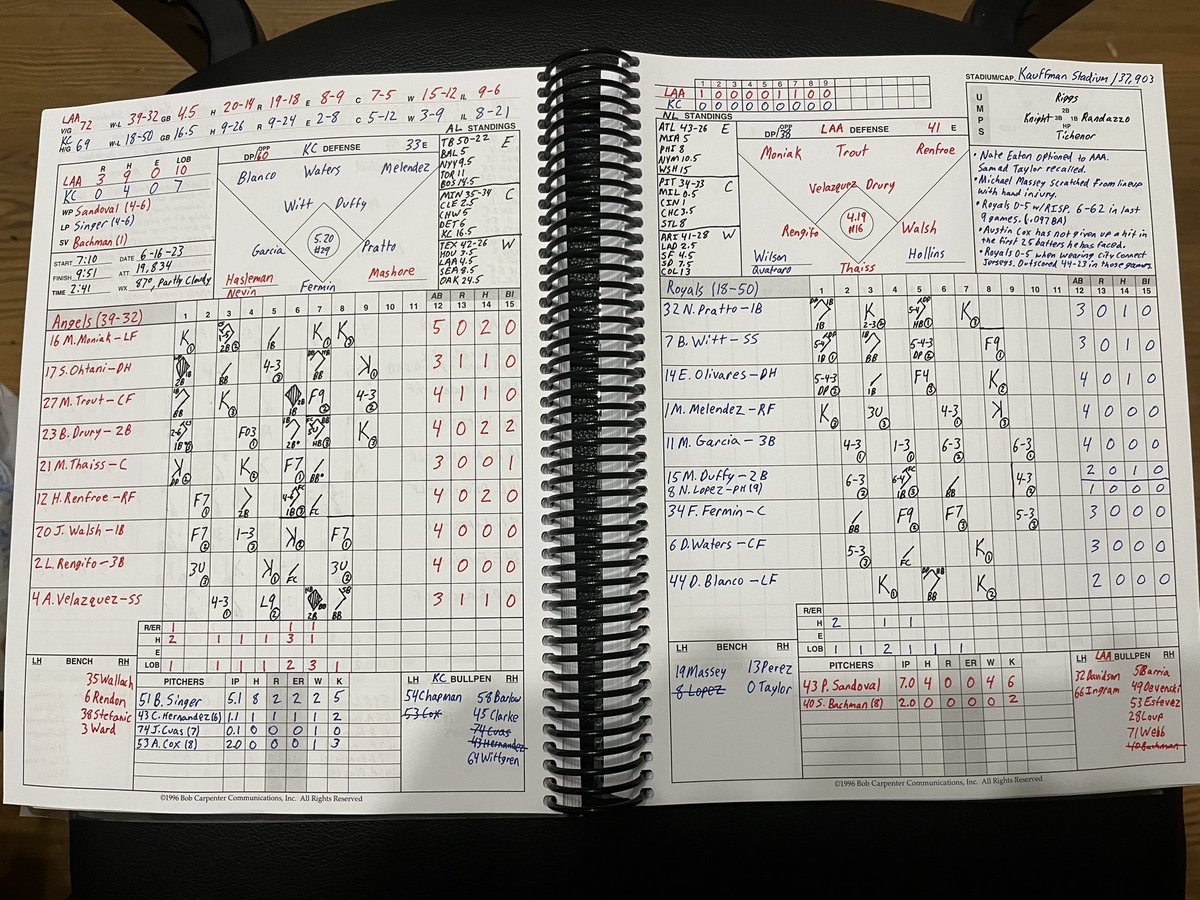 LAA VIG 72 W-L 39-32 GB 4.5 H 20-14 R 19-18 E 8-9 C 7-5 W 15-12 IL 9-6
KC H/G 69 W-L 18-50 GB 16.5 H 9-26 R 9-24 E 2-8 C 5-12 W 3-9 IL 8-21
R H E LOB
LAA 3 9 0 10
KC 0 4 0 7
WP Sandoval (4-6)
LP Singer (4-6)
SV Bachman (1)
START 7:10 DATE 6-16-23
FINISH 9:51 ATT. 19,834
TIME 2:41 WX 87°, Partly Cloudy
DP/OPP 60 KC DEFENSE 33 E
Blanco Waters Melendez
Witt Duffy
Garcia 5.20 #29 Pratto
Hasleman Mashore
Nevin Fermin
AL STANDINGS
TB 50-22 E
BAL 5
NYY 9.5
TOR 11
BOS 14.5
MIN 35-34 C
CLE 2.5
CHW 5
DET 6
KC 16.5
TEX 42-26 W
HOU 3.5
LAA 4.5
SEA 8.5
OAK 24.5
Angels (39-32) 1 2 3 4 5 6 7 8 9 10 11 AB 12 R 13 H 14 BI 15
16 M. Moniak-LF K 1-5 2B 1B K K 5 0 2 0
17 S. Ohtani-DH 2B BB 4-3 BB K 3 1 1 0
27 M. Trout-CF BB K 1B F9 4-3 4 1 1 0
23 B. Drury-2B 2-6 1B FO3 2B HB K 4 0 2 2
21 M. Thaiss-C K K F7 BB 3 0 0 1
12 H. Renfroe-RF F7 2B 4-6 1B FC 4 0 2 0
20 J. Walsh-1B F7 1-3 K F7 4 0 0 0
2 L. Rengifo-3B 3U K FC 3U 4 0 0 0
4 A. Velazquez-SS 4-3 L9 2B BB 3 1 1 0
R/ER 1 1 1
H 2 1 1 1 3 1
E
LOB 1 1 1 1 2 3 1
LH BENCH RH
35 Wallach
6 Rendon
38 Stefanic
3 Ward
PITCHERS IP H R ER W K
51 B. Singer 5.1 8 2 2 2 5
43 C. Hernandez (6) 1.1 1 1 1 1 2
74 J. Cuas (7) 0.1 0 0 0 1 0
53 A. Cox (8) 2.0 0 0 0 1 3
LH KC BULLPEN RH
54 Chapman 58 Barlow
53 Cox 45 Clarke
74 Cuas
43 Hernandez
64 Wittgren
©1996 Bob Carpenter Communications, Inc. All Rights Reserved
1 2 3 4 5 6 7 8 9
LAA 1 0 0 0 0 1 1 0 0
KC 0 0 0 0 0 0 0 0 0
STADIUM/CAP. Kauffman Stadium / 37,903
UMPS
Ripps
2B
Knight 3B 1B Randazzo
HP
Tichenor
NL STANDINGS
ATL 43-26 E
MIA 5
PHI 8
NYM 10.5
WSH 15
PIT 34-33 C
MIL 0.5
CIN 1
CHC 3.5
STL 8
ARI 41-28 W
LAD 2.5
SF 4.5
SD 7.5
COL 13
DP/OPP 58 LAA DEFENSE 41 E
Moniak Trout Renfroe
Velazquez Drury
Rengifo 4.19 #16 Walsh
Wilson Hollins
Quatraro Thaiss
• Nate Eaton optioned to AAA. Samad Taylor recalled.
• Michael Massey scratched from lineup with hand injury.
• Royals 0-5 w/RISP. 6-62 in last 9 games. (.097 BA)
• Austin Cox has not given up a hit in the first 25 batters he has faced.
• Royals 0-5 when wearing City Connect Jerseys. Outscored 44-23 in those games.
Royals (18-50) 1 2 3 4 5 6 7 8 9 10 11 AB 12 R 13 H 14 BI 15
32 N. Pratto-1B 1B K 2-3 5-4 HB K 3 0 1 0
7 B. Witt-SS 5-4 1B BB 5-4-3 DP F9 3 0 1 0
14 E. Olivares-DH 5-4-3 DP 1B F4 K 4 0 1 0
1 M. Melendez-RF K 3U 4-3 K 4 0 0 0
11 M. Garcia-3B 4-3 1-3 6-3 6-3 4 0 0 0
15 M. Duffy-2B 6-3 6-4 1B BB 2 0 1 0
8 N. Lopez-PH (9) 4-3 1 0 0 0
34 F. Fermin-C BB F9 F7 5-3 3 0 0 0
6 D. Waters-CF 5-3 FC K 3 0 0 0
44 D. Blanco-LF K BB K 2 0 0 0
R/ER
H 2 1 1
E
LOB 1 1 2 1 1 1
LH BENCH RH
19 Massey 13 Perez
8 Lopez 0 Taylor
PITCHERS IP H R ER W K
43 P. Sandoval 7.0 4 0 0 4 6
40 S. Bachman (8) 2.0 0 0 0 0 2
LH LAA BULLPEN RH
32 Davidson 51 Barria
66 Ingram 49 Devenski
53 Estevez
28 Loup
71 Webb
40 Bachman
©1996 Bob Carpenter Communications, Inc. All Rights Reserved